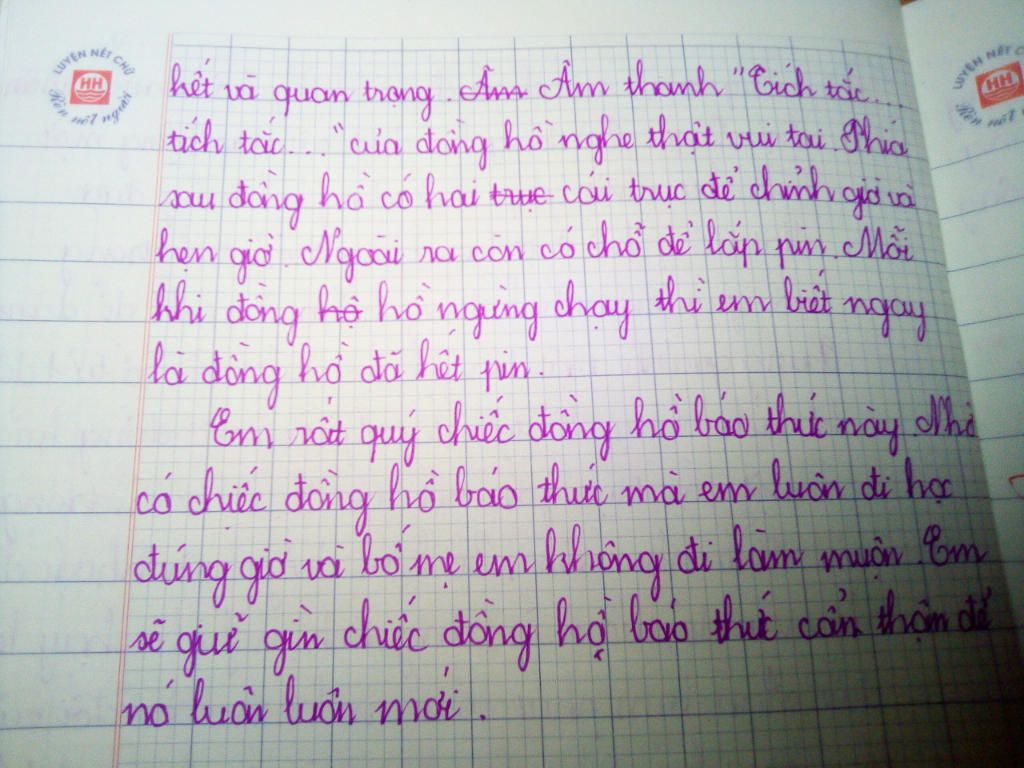 LUYỆN NÉT CHỮ
HH
Rèn nết người
hết và quan trạng. Âm Âm thanh "Tích tắc...
tích tắc..." của đồng hồ nghe thật vui tai. Phía
sau đồng hồ có hai trục cái trục để chỉnh giờ và
hẹn giờ. Ngoài ra còn có chổ để lắp pin. Mỗi
khi đồng hộ hồ ngừng chạy thì em biết ngay
là đồng hồ đã hết pin.
Em rất quý chiếc đồng hồ báo thức này. Nhờ
có chiếc đồng hồ báo thức mà em luôn đi học
đúng giờ và bố mẹ em không đi làm muộn. Em
sẽ giữ gìn chiếc đồng hồ báo thức cẩn thận để
nó luôn luôn mới.